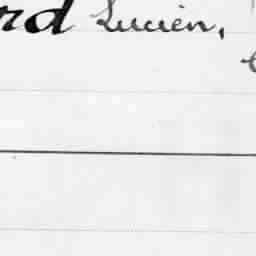 rd Lucien,